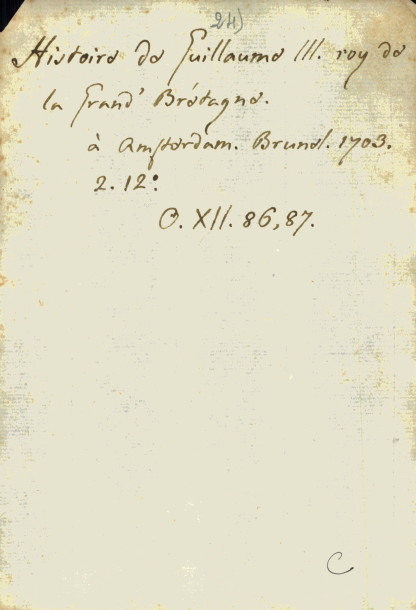 24)
Histoire de Guillaume III. roy de
la Grand' Brétagne.
à Amsterdam. Brunel. 1703.
2. 12º.
O. XII. 86,87.
C